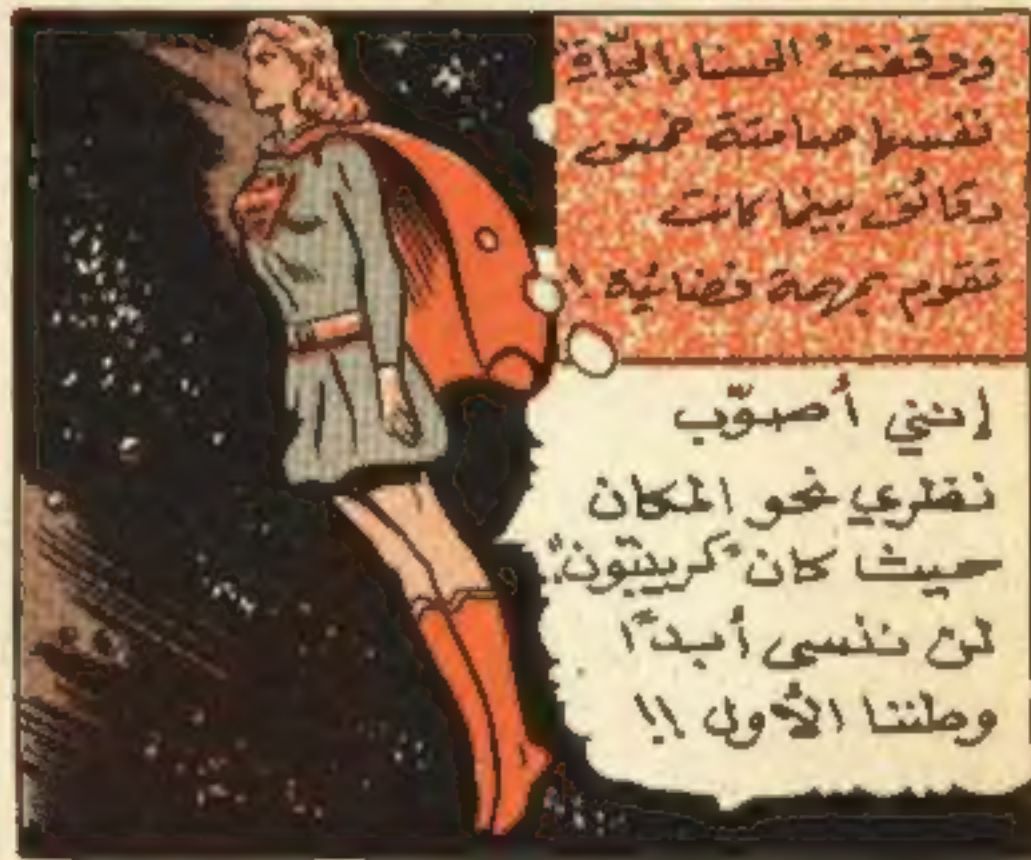 ووقفت الحسناء الجبّارة
نفسها صامتة خمس
دقائق بينما كانت
تقوم بمهمة فضائية !
إنني أصوّب
نظري نحو المكان
حيث كان "كريبتون"!!
لن ننسى أبدًا
وطننا الأول !!